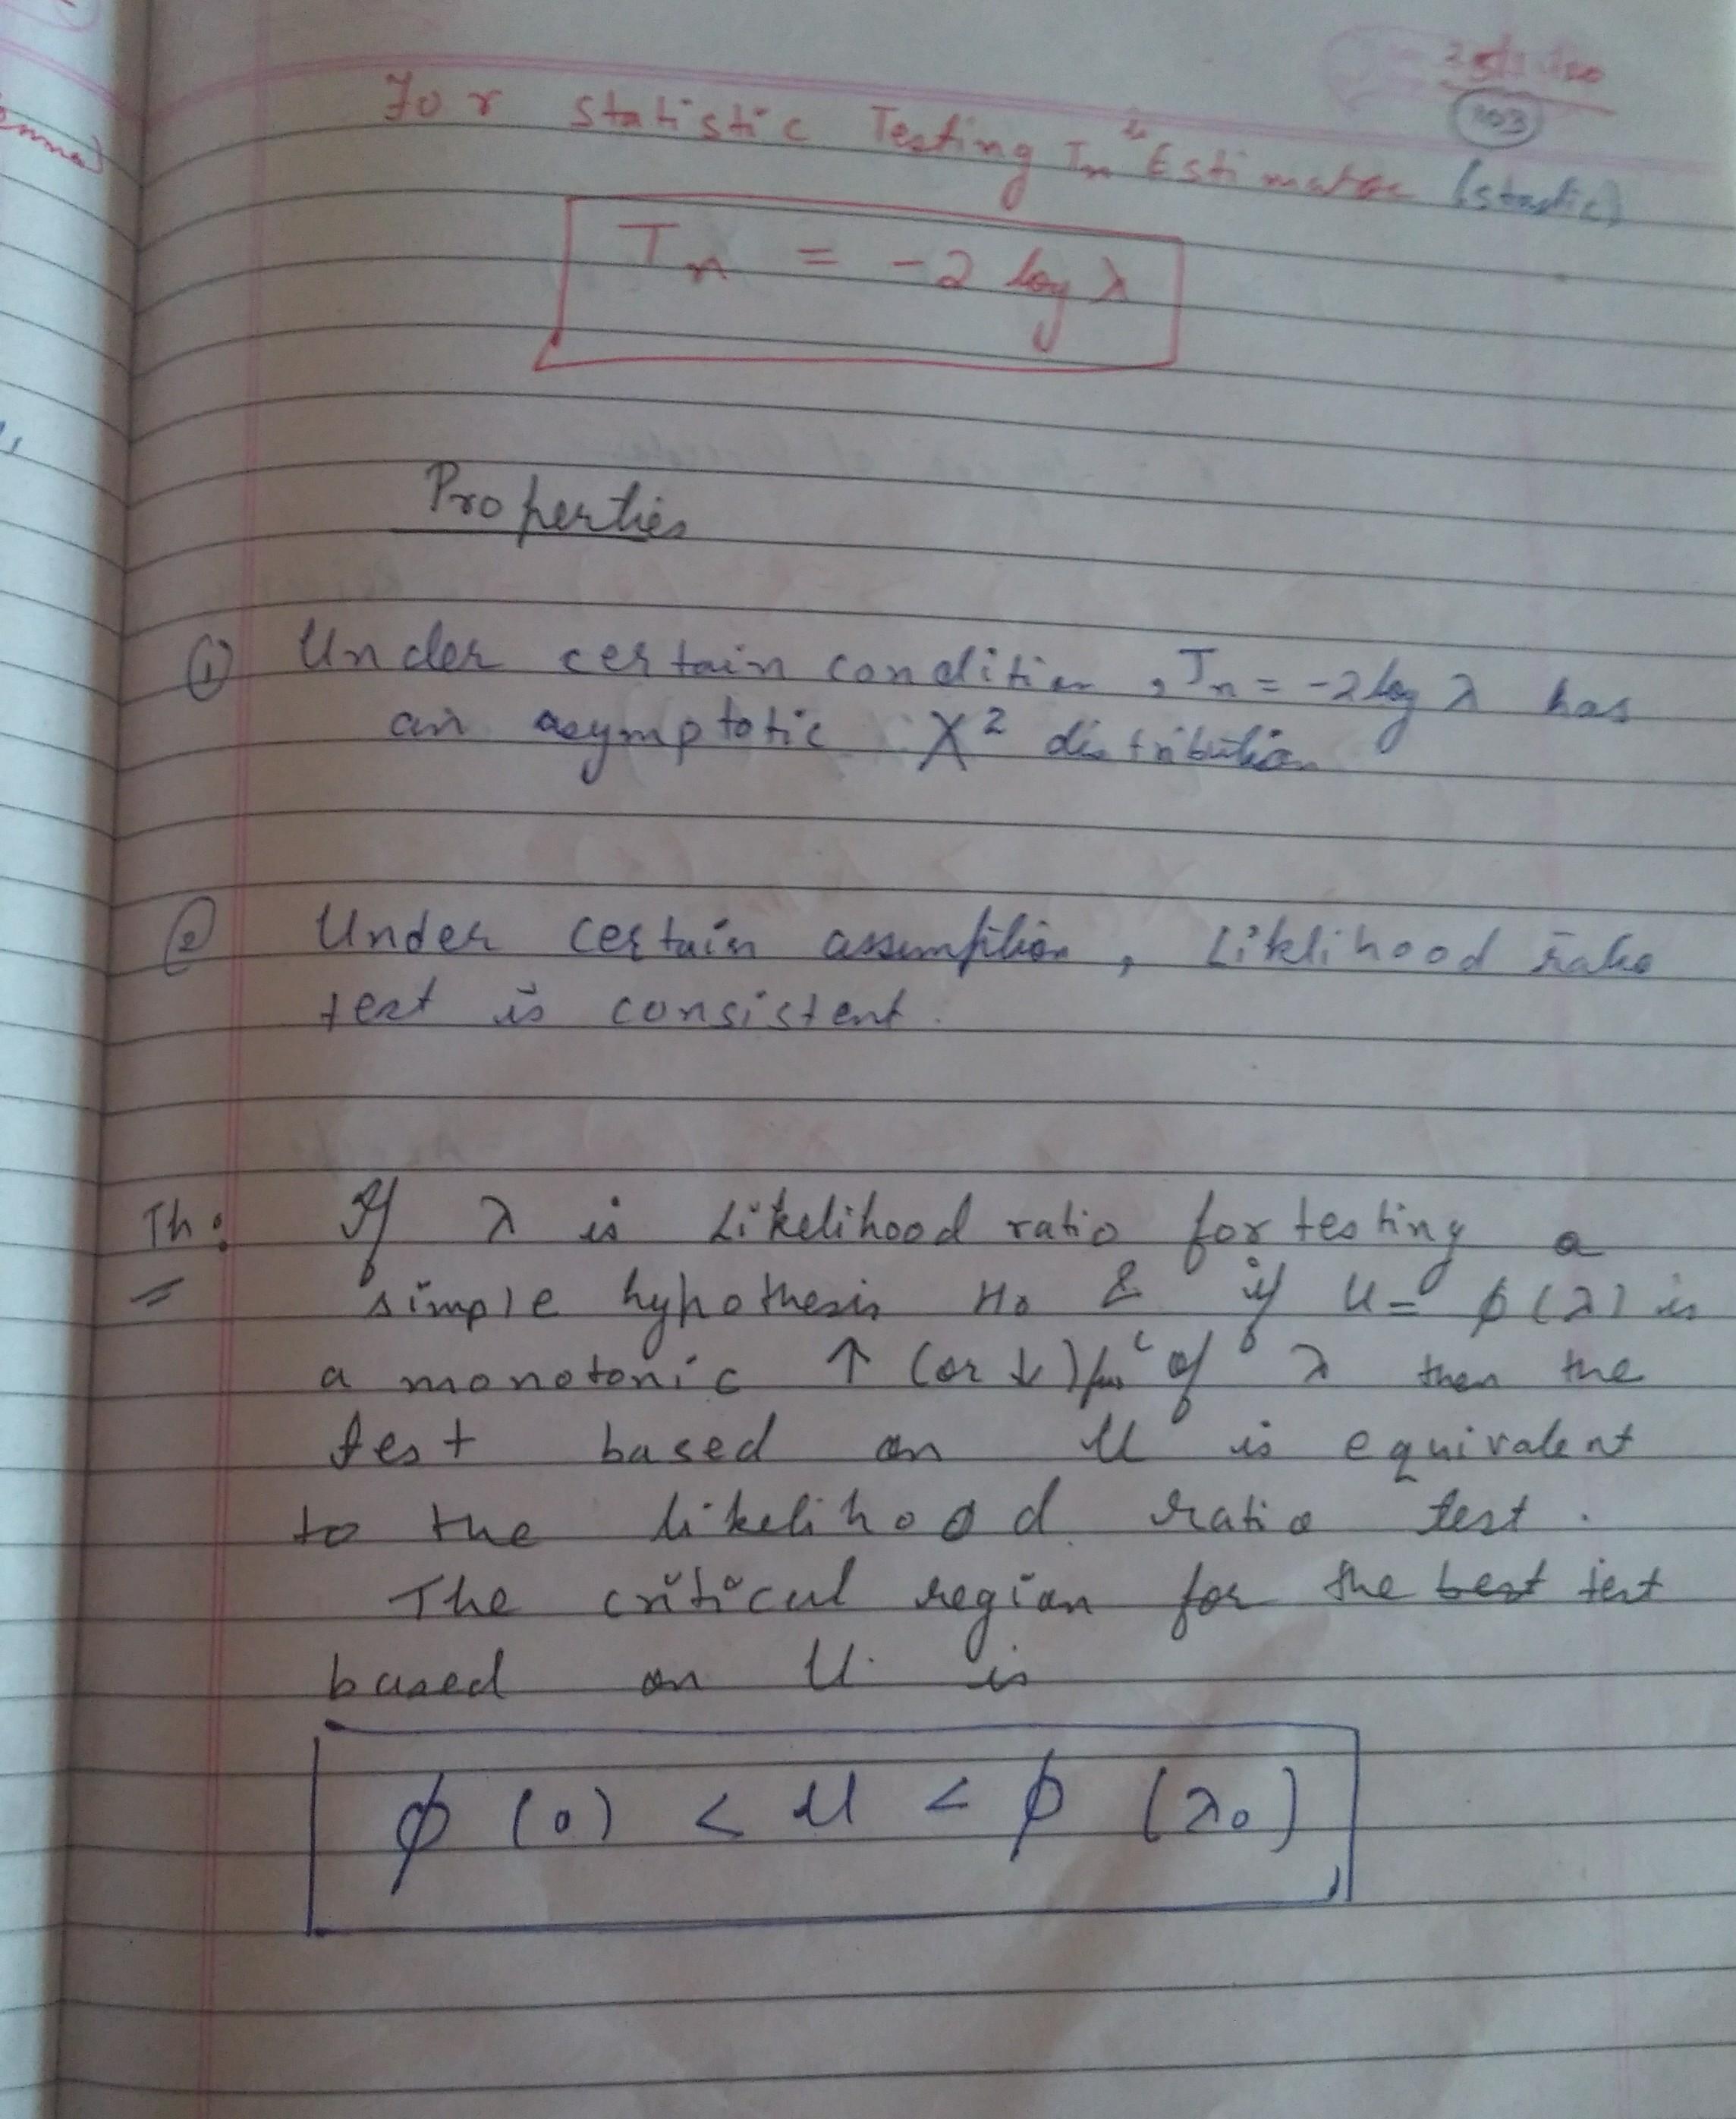 103
For statistic Testing Tn "Estimator (stastic)
Tn = -2 log λ
Properties
① Under certain condition, Tn = -2 log λ has
an asymptotic χ² distribution
② Under certain assumption, Liklihood ratio
test is consistent.
Th: If λ is Likelihood ratio for testing a
simple hypothesis H₀ & if U = φ(λ) is
a monotonic ↑ (or ↓) funᶜ of λ then the
test based on U is equivalent
to the likelihood ratio test.
The critical region for the best test
based on U is
φ(0) < U < φ(λ₀)